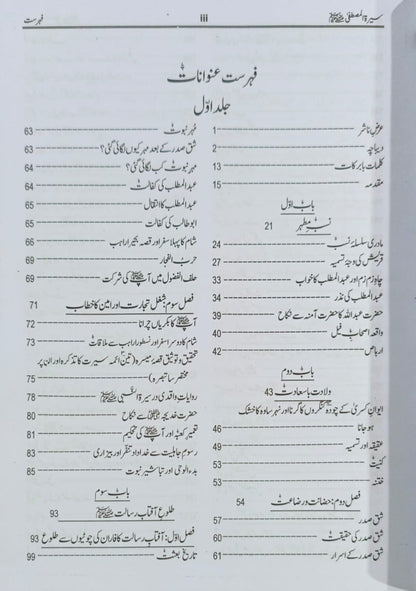 سیرۃ المصطفیٰ ﷺ iii فہرست
فہرست عنوانات
جلد اوّل
عرض ناشر 1
دیباچہ 2
کلمات بابرکات 13
مقدمہ 15
باب اوّل
نسب مطہر 21
مادری سلسلۂ نسب 24
قریش کی وجہ تسمیہ 27
چاہ زم زم اور عبدالمطلب کا خواب 33
عبدالمطلب کی نذر 34
حضرت عبداللہ کا حضرت آمنہ سے نکاح 39
واقعہ اصحاب فیل 40
ارہاص 42
باب دوم
ولادت باسعادت 43
ایوان کسریٰ کے چودہ کنگروں کا گرنا اور نہر ساوہ کا خشک
ہو جانا 46
عقیقہ اور تسمیہ 49
کنیت 53
ختنہ 53
فصل دوم: حضانت و رضاعت 54
شق صدر 57
شق صدر کی حقیقت 60
شق صدر کے اسرار 61
مُہر نبوت 63
شق صدر کے بعد مہر کیوں لگائی گئی؟ 63
مہر نبوت کب لگائی گئی؟ 64
عبدالمطلب کی کفالت 64
عبدالمطلب کا انتقال 65
ابوطالب کی کفالت 65
شام کا پہلا سفر اور قصہ بحیرا راہب 66
حرب الفجار 69
حلف الفضول میں آپ ﷺ کی شرکت 69
فصل سوم: شغل تجارت اور امین کا خطاب 71
آپ ﷺ کا بکریاں چرانا 72
شام کا دوسرا سفر اور نسطورا راہب سے ملاقات 73
تحقیق و توثیق قصہ میسرہ (تین ائمہ سیرت کا تذکرہ اور ان پر
مختصر سا تبصرہ) 75
روایات واقدی در سیرۃ النبی ﷺ 78
حضرت خدیجہ سے نکاح 80
تعمیر کعبہ اور آپ ﷺ کی تحکیم 81
رسوم جاہلیت سے خداداد تنفر اور بیزاری 83
بدء الوحی اور تباشیر نبوت 85
باب سوم
طلوع آفتاب رسالت ﷺ 93
فصل اوّل: آفتاب رسالت کا فاران کی چوٹیوں سے طلوع 93
تاریخ بعثت 99